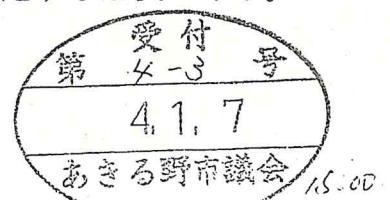 受付
第 4-3 号
4.1.7
あきる野市議会
15:00